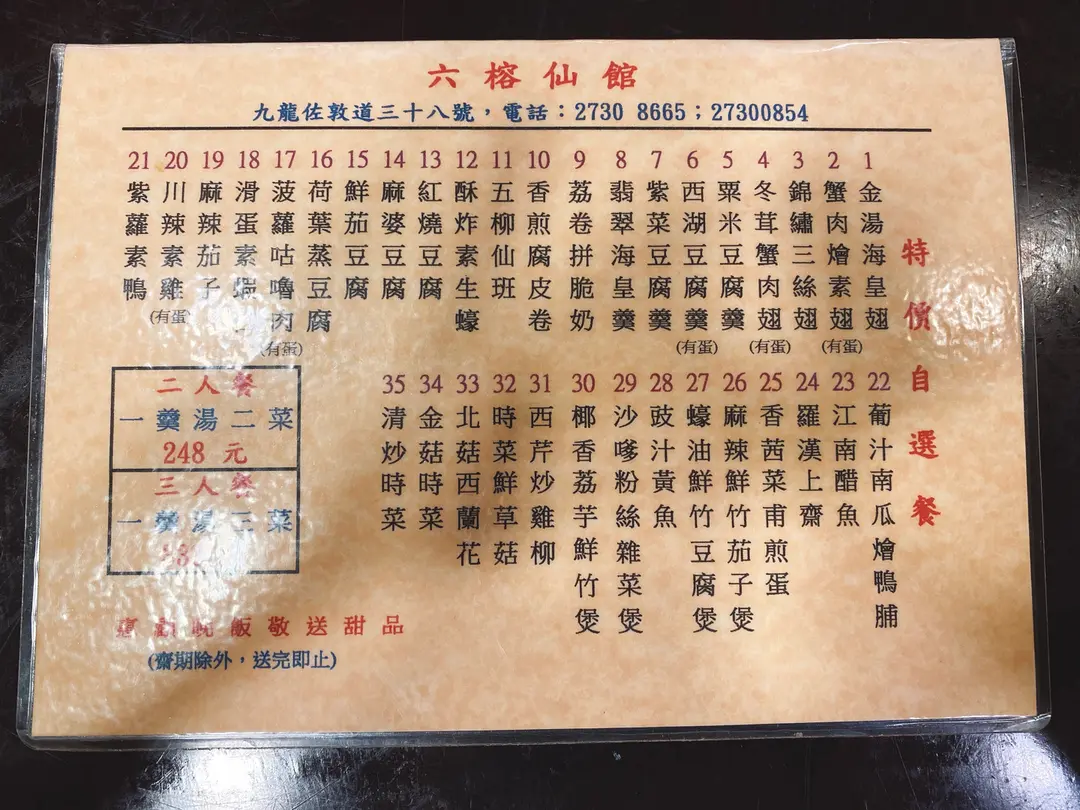 六榕仙館
九龍佐敦道三十八號，電話：2730 8665；27300854
特價自選餐
1 金湯海皇翅
2 蟹肉燴素翅(有蛋)
3 錦繡三絲翅
4 冬茸蟹肉翅(有蛋)
5 粟米豆腐羹
6 西湖豆腐羹(有蛋)
7 紫菜豆腐羹
8 翡翠海皇羹
9 荔卷拼脆奶
10 香煎腐皮卷
11 五柳仙班
12 酥炸素生蠔
13 紅燒豆腐
14 麻婆豆腐
15 鮮茄豆腐
16 荷葉蒸豆腐
17 菠蘿咕嚕肉(有蛋)
18 滑蛋素
19 麻辣茄子
20 川辣素雞(有蛋)
21 紫蘿素鴨
22 葡汁南瓜燴鴨脯
23 江南醋魚
24 羅漢上齋
25 香茜菜甫煎蛋
26 麻辣鮮竹茄子煲
27 蠔油鮮竹豆腐煲
28 豉汁黃魚
29 沙嗲粉絲雜菜煲
30 椰香荔芋鮮竹煲
31 西芹炒雞柳
32 時菜鮮草菇
33 北菇西蘭花
34 金菇時菜
35 清炒時菜
二人餐
一羹湯二菜
248 元
三人餐
一羹湯三菜
惠顧晚飯敬送甜品
(齋期除外，送完即止)